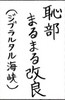 恥部
まるまる改良
(ジブラルタル海峡)